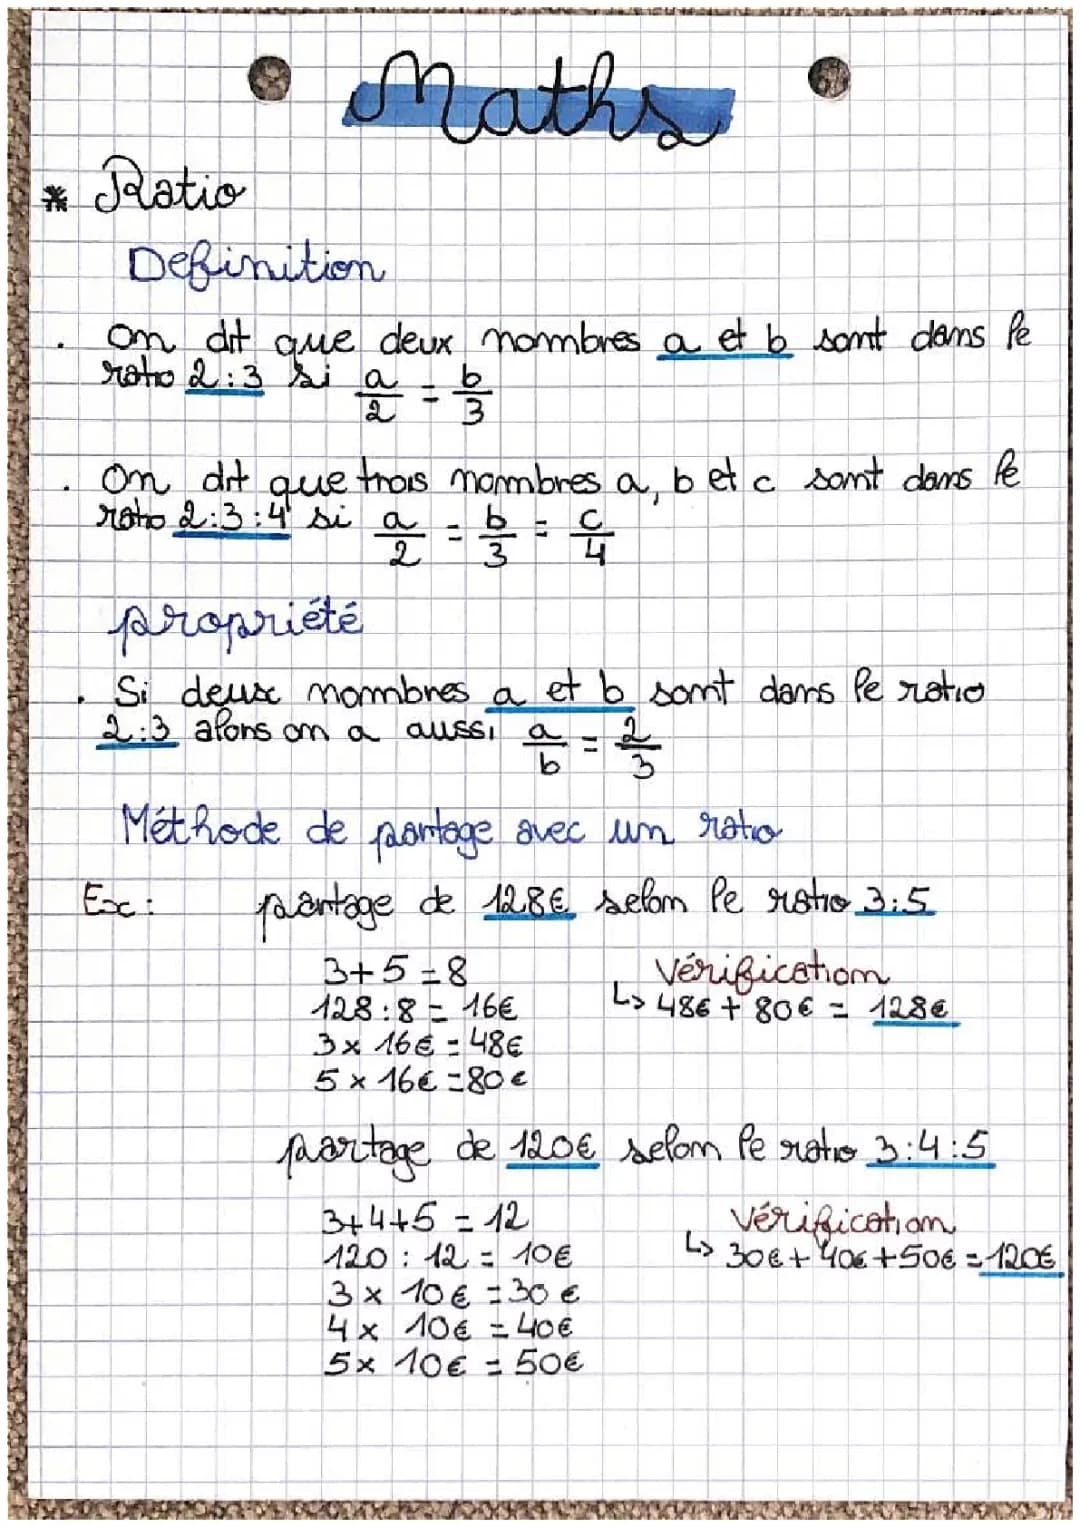 Maths
* Ratio
Definition
. On dit que deux nombres a et b sont dans le
ratio 2:3 si a/2 = b/3
. On dit que trois nombres a, b et c sont dans le
ratio 2:3:4 si a/2 = b/3 = c/4
propriété
. Si deux nombres a et b sont dans le ratio
2:3 alors on a aussi a/b = 2/3
Méthode de partage avec un ratio
Ex: partage de 128€ selon le ratio 3:5
3+5=8
128:8 = 16€
3 x 16€ = 48€
5 x 16€ = 80€
Vérification
↳ 48€ + 80€ = 128€
partage de 120€ selon le ratio 3:4:5
3+4+5 = 12
120 : 12 = 10€
3 x 10€ = 30€
4 x 10€ = 40€
5 x 10€ = 50€
Vérification
↳ 30€ + 40€ + 50€ = 120€